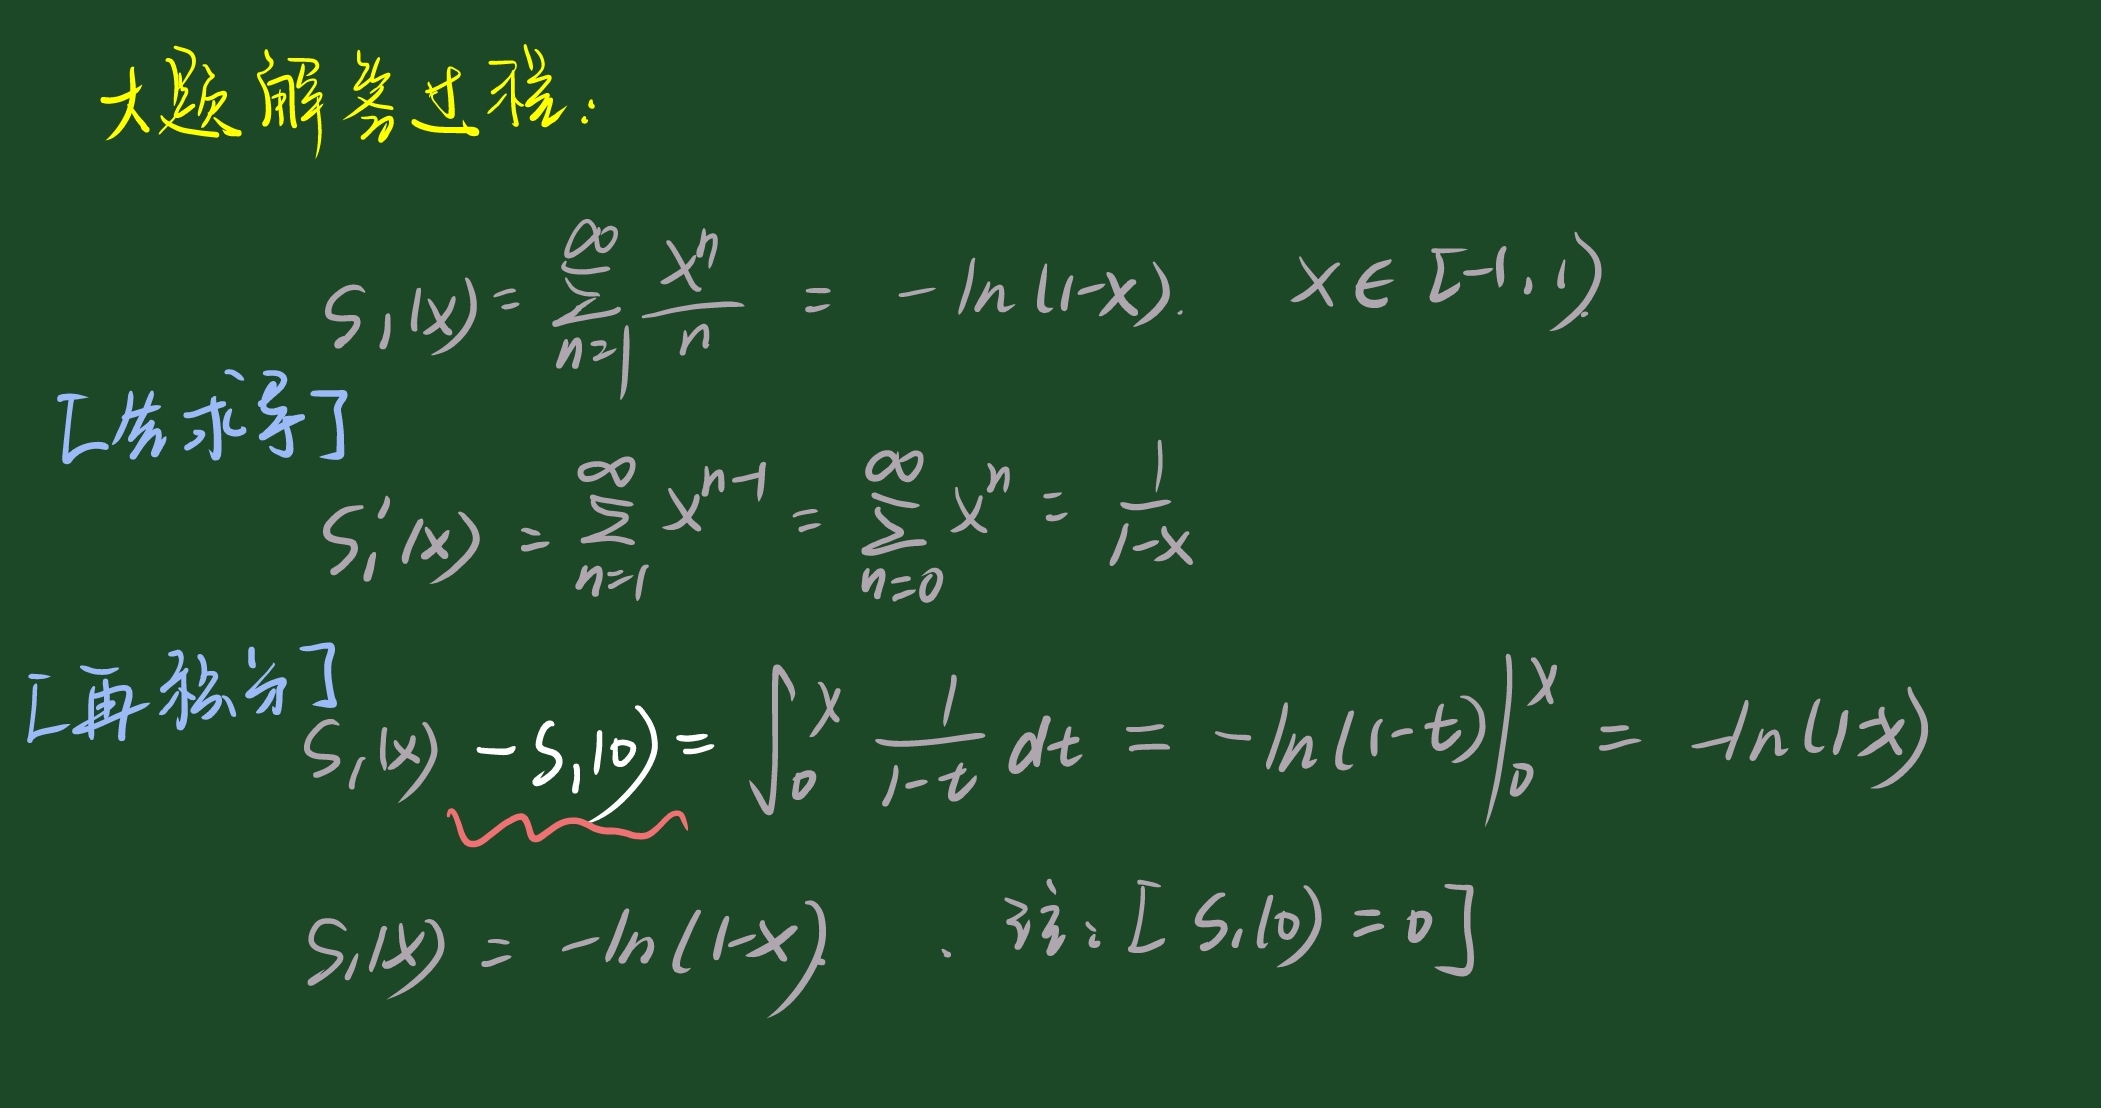 大题解答过程:
S₁(x) = ∑_{n=1}^{∞} xⁿ/n = -ln(1-x). x∈[-1,1)
[先求导]
S₁'(x) = ∑_{n=1}^{∞} xⁿ⁻¹ = ∑_{n=0}^{∞} xⁿ = 1/(1-x)
[再积分]
S₁(x) - S₁(0) = ∫₀ˣ 1/(1-t) dt = -ln(1-t)|₀ˣ = -ln(1-x)
S₁(x) = -ln(1-x). 注: [S₁(0) = 0]